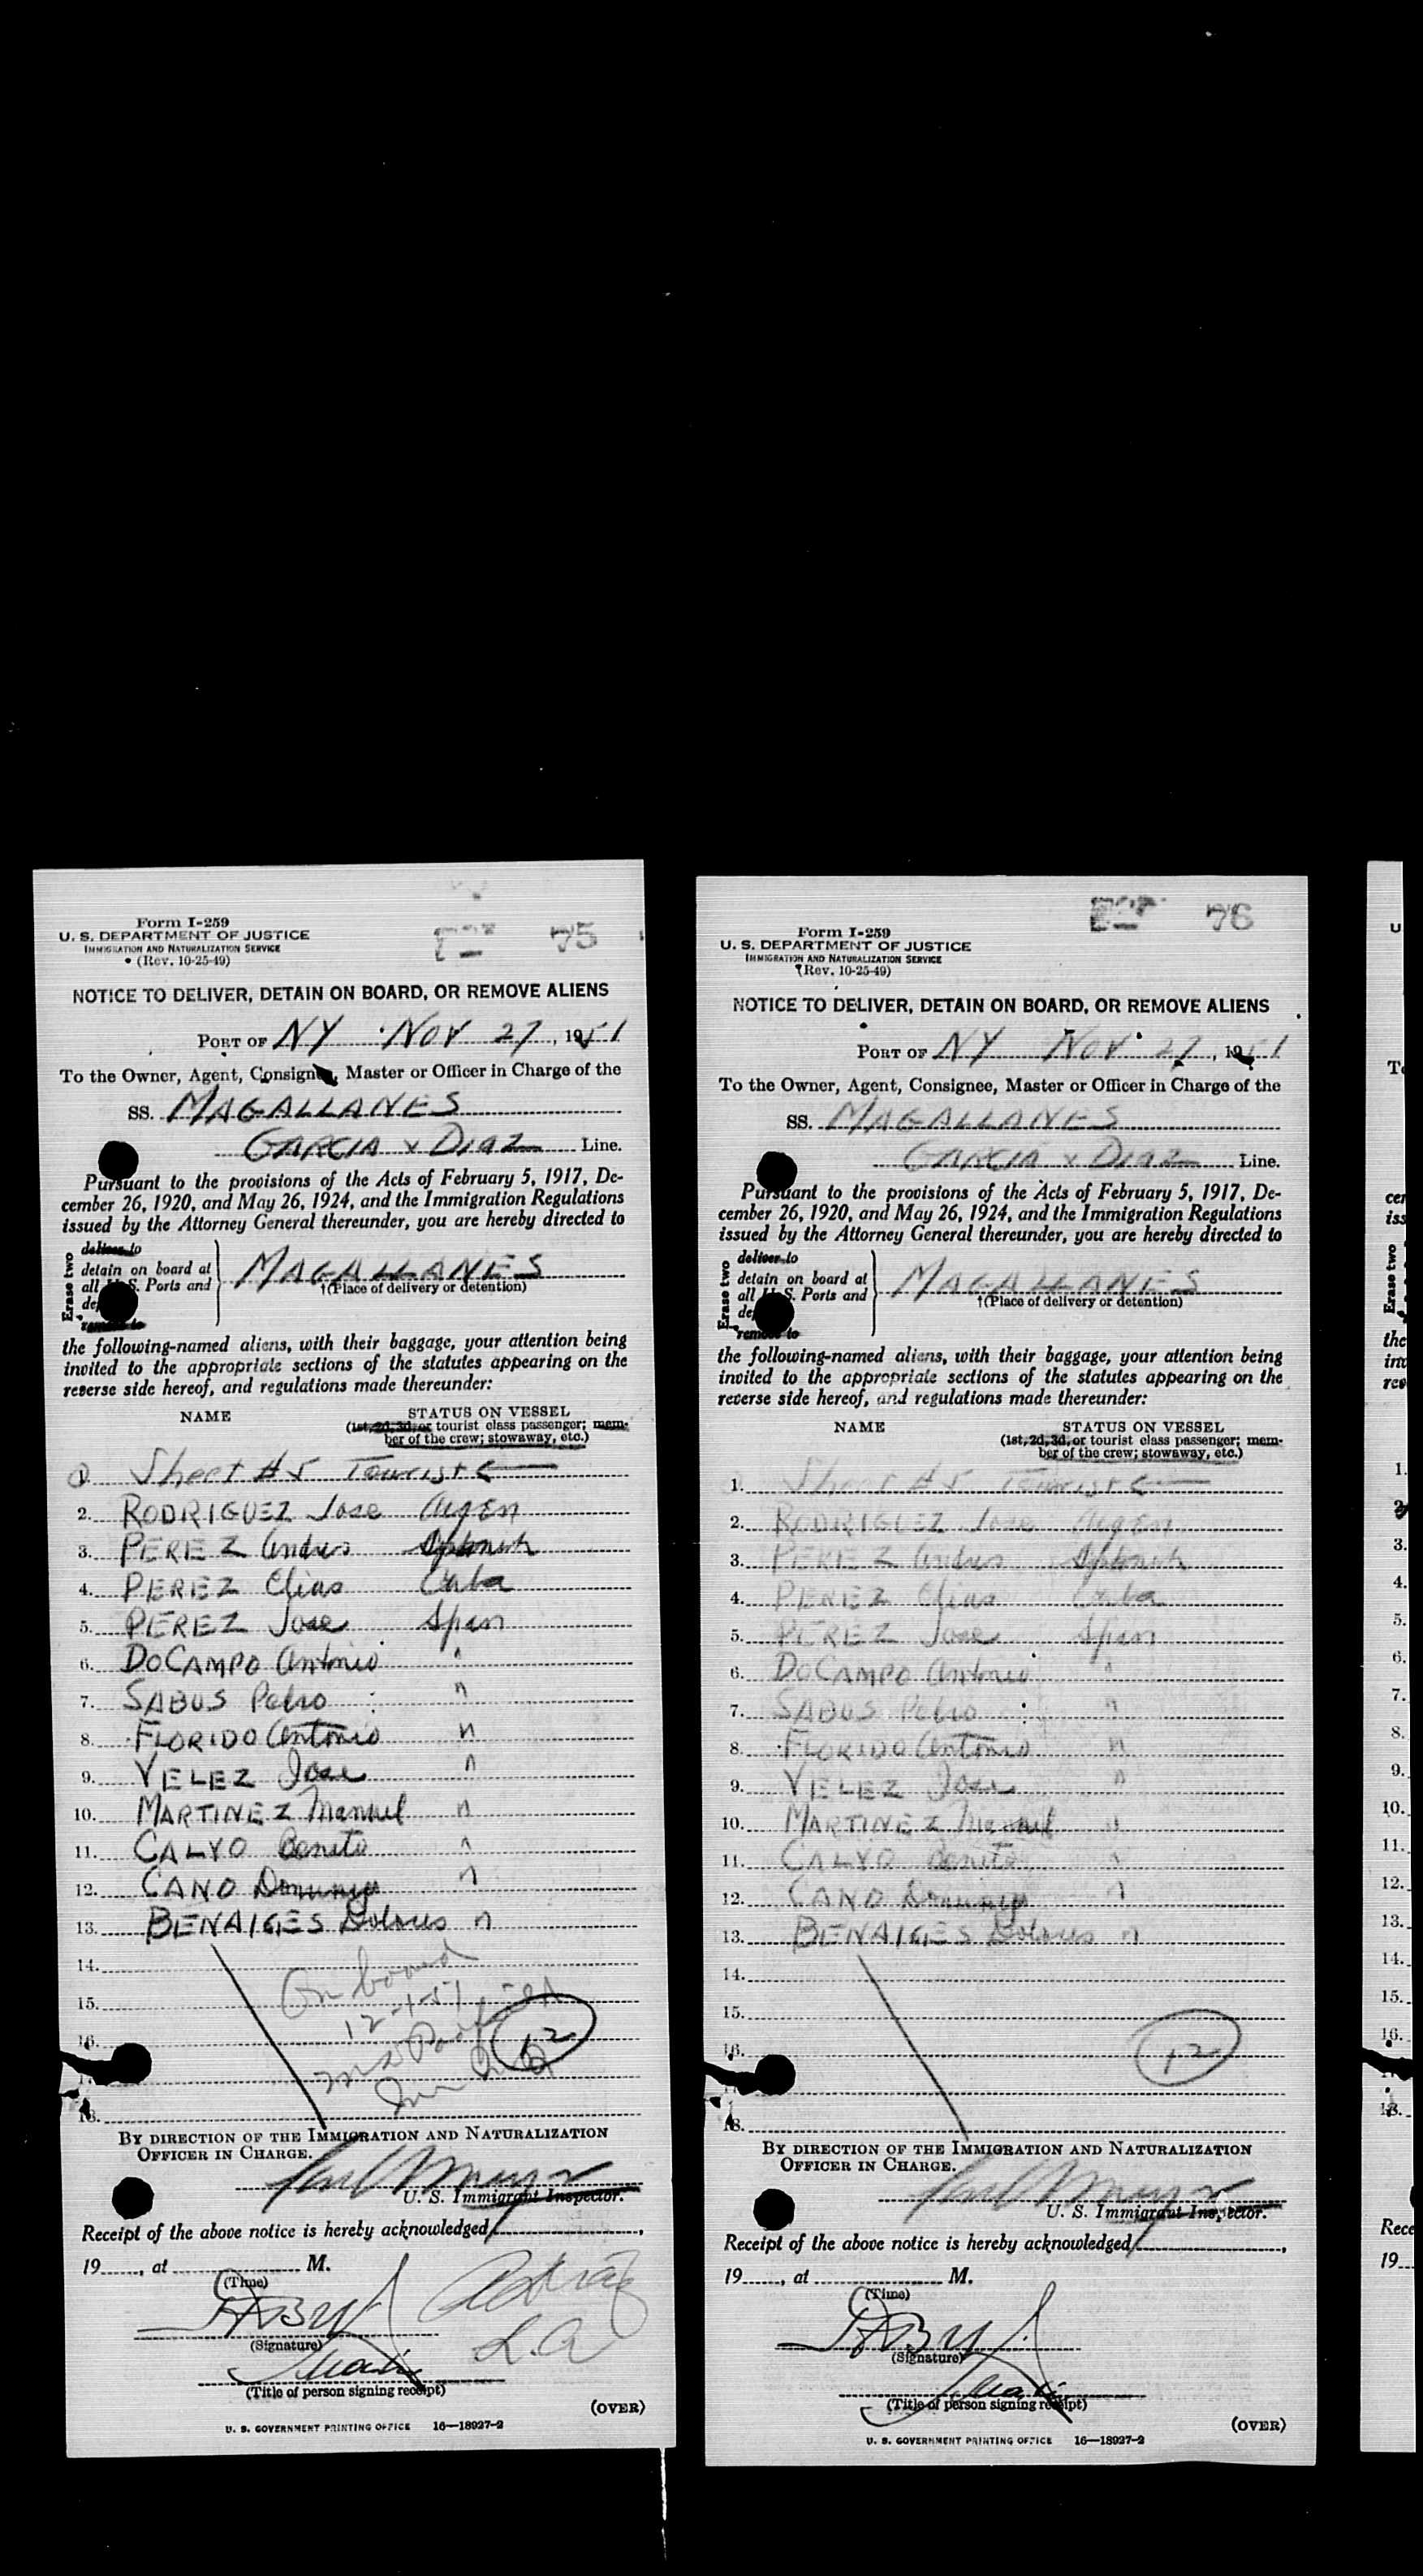 Form I-259
U. S. DEPARTMENT OF JUSTICE
IMMIGRATION AND NATURALIZATION SERVICE
(Rev. 10-25-49)
75
NOTICE TO DELIVER, DETAIN ON BOARD, OR REMOVE ALIENS
PORT OF NY Nov 27, 1951
To the Owner, Agent, Consignee, Master or Officer in Charge of the
SS. MAGALLANES
GARCIA & DIAZ Line.
Pursuant to the provisions of the Acts of February 5, 1917, De-
cember 26, 1920, and May 26, 1924, and the Immigration Regulations
issued by the Attorney General thereunder, you are hereby directed to
Erase two
deliver to
detain on board at
all U. S. Ports and
remove to
MAGALLANES
†(Place of delivery or detention)
the following-named aliens, with their baggage, your attention being
invited to the appropriate sections of the statutes appearing on the
reverse side hereof, and regulations made thereunder:
NAME STATUS ON VESSEL
(1st, 2d, 3d, or tourist class passenger; mem-
ber of the crew; stowaway, etc.)
1. Sheet #5 Tourist
2. RODRIGUEZ Jose Argen
3. PEREZ Andres Spanish
4. PEREZ Elias Cuba
5. PEREZ Jose Span
6. DOCAMPO Antonio "
7. SABUS Pedro "
8. FLORIDO Antonio "
9. VELEZ Jose "
10. MARTINEZ Manuel "
11. CALVO Benito "
12. CANO Domingo "
13. BENAIGES Dolores "
14.
On board
15.
12-1-51
16.
12
18.
BY DIRECTION OF THE IMMIGRATION AND NATURALIZATION
OFFICER IN CHARGE.
U. S. Immigrant Inspector.
Receipt of the above notice is hereby acknowledged
19, at M.
(Time)
(Signature)
(Title of person signing receipt)
(OVER)
U. S. GOVERNMENT PRINTING OFFICE 16—18927-2
Form I-259
U. S. DEPARTMENT OF JUSTICE
IMMIGRATION AND NATURALIZATION SERVICE
(Rev. 10-25-49)
76
NOTICE TO DELIVER, DETAIN ON BOARD, OR REMOVE ALIENS
PORT OF NY Nov 27, 1951
To the Owner, Agent, Consignee, Master or Officer in Charge of the
SS. MAGALLANES
GARCIA & DIAZ Line.
Pursuant to the provisions of the Acts of February 5, 1917, De-
cember 26, 1920, and May 26, 1924, and the Immigration Regulations
issued by the Attorney General thereunder, you are hereby directed to
Erase two
deliver to
detain on board at
all U. S. Ports and
remove to
MAGALLANES
†(Place of delivery or detention)
the following-named aliens, with their baggage, your attention being
invited to the appropriate sections of the statutes appearing on the
reverse side hereof, and regulations made thereunder:
NAME STATUS ON VESSEL
(1st, 2d, 3d, or tourist class passenger; mem-
ber of the crew; stowaway, etc.)
1. Sheet #5 Tourist
2. RODRIGUEZ Jose Argen
3. PEREZ Andres Spanish
4. PEREZ Elias Cuba
5. PEREZ Jose Span
6. DOCAMPO Antonio "
7. SABUS Pedro "
8. FLORIDO Antonio "
9. VELEZ Jose "
10. MARTINEZ Manuel "
11. CALVO Benito "
12. CANO Domingo "
13. BENAIGES Dolores "
14.
15.
16.
12
18.
BY DIRECTION OF THE IMMIGRATION AND NATURALIZATION
OFFICER IN CHARGE.
U. S. Immigrant Inspector.
Receipt of the above notice is hereby acknowledged
19, at M.
(Time)
(Signature)
(Title of person signing receipt)
(OVER)
U. S. GOVERNMENT PRINTING OFFICE 16—18927-2